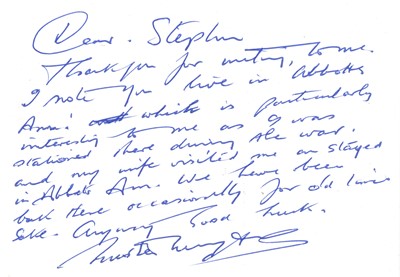 Dear. Stephen
Thank you for writing, to me.
I note you live in Abbotts
Ann! which is particularly
interesting to me as I was
stationed here during the war.
and my wife visited me an stayed
in Abbots Ann. We have been
back there occasionally for old times
sake. Anyway Good luck.